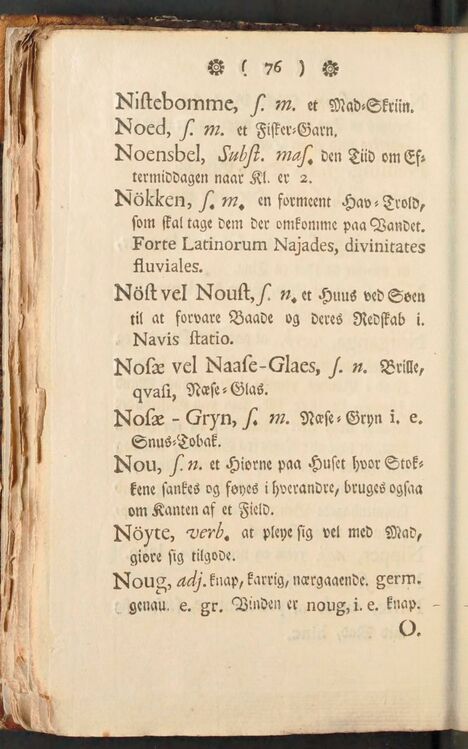 ( 76 )
Nistebomme, s. m. et Mad-Skriin.
Noed, s. m. et Fisker-Garn.
Noensbel, Subst. mas. den Tiid om Ef-
termiddagen naar Kl. er 2.
Nökken, s. m. en formeent Hav-Trold,
som skal tage dem der omkomme paa Vandet.
Forte Latinorum Najades, divinitates
fluviales.
Nöst vel Noust, s. n. et Huus ved Søen
til at forvare Baade og deres Redskab i.
Navis statio.
Nosæ vel Naase-Glaes, s. n. Brille,
qvasi, Næse-Glas.
Nosæ - Gryn, s. m. Næse-Gryn i. e.
Snus-Tobak.
Nou, s. n. et Hiørne paa Huset hvor Stok-
kene sankes og føyes i hverandre, bruges ogsaa
om Kanten af et Field.
Nöyte, verb. at pleye sig vel med Mad,
giøre sig tilgode.
Noug, adj. knap, karrig, nærgaaende. germ.
genau. e. gr. Vinden er noug, i. e. knap.
O.